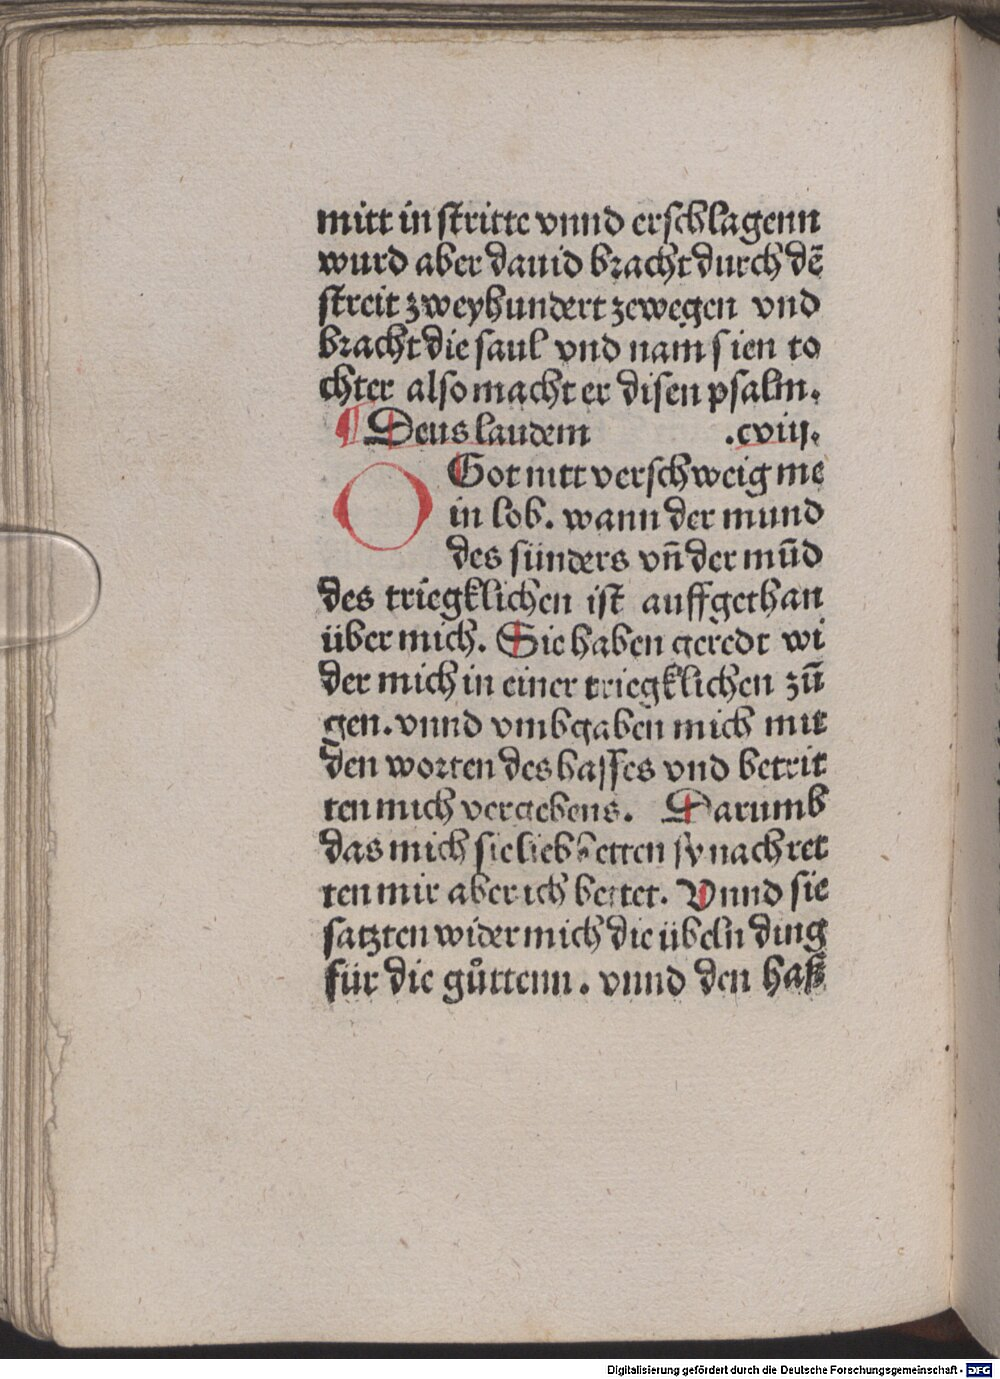 mitt in stritte vnnd erschlagenn
wurd aber dauid bracht durch dē
streit zweyhundert zewegen vnd
bracht die saul vnd nam sien to
chter also macht er disen psalm.
¶ Deus laudem .cviij.
O Got nitt verschweig me
in lob. wann der mund
des sünders vn̄ der mūd
des triegklichen ist auffgethan
über mich. Sie haben geredt wi
der mich in einer triegklichen zū
gen. vnnd vmbgaben mich mit
den worten des hasses vnd betrit
ten mich vergebens. Darumb
das mich sie lieb hetten sy nach ret
ten mir aber ich bettet. Vnnd sie
satzten wider mich die übeln ding
für die gůttenn. vnnd den haß
Digitalisierung gefördert durch die Deutsche Forschungsgemeinschaft - DFG